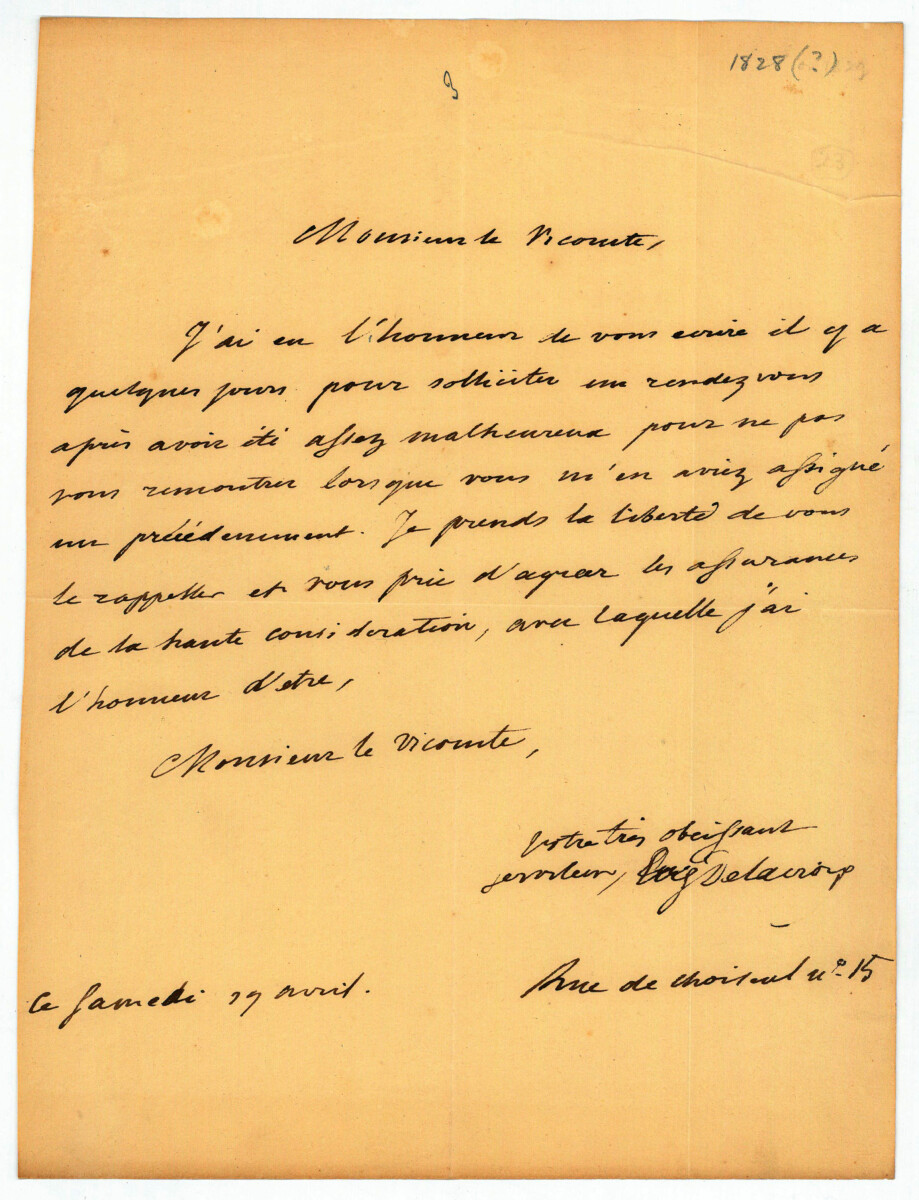 1828 (?)
3
23
Monsieur le Vicomte,
J'ai eu l'honneur de vous ecrire il y a
quelques jours pour solliciter un rendez vous
après avoir été assez malheureux pour ne pas
vous remontrer lorsque vous m'en aviez assigné
un précédemment. Je prends la liberté de vous
le rappeller et vous prie d'agreer les assurances
de la haute consideration, avec laquelle j'ai
l'honneur d'etre,
Monsieur le Vicomte,
Votre très obeissant
serviteur, Eug Delacroix
Rue de choiseul n° 15
Ce Samedi 19 avril.